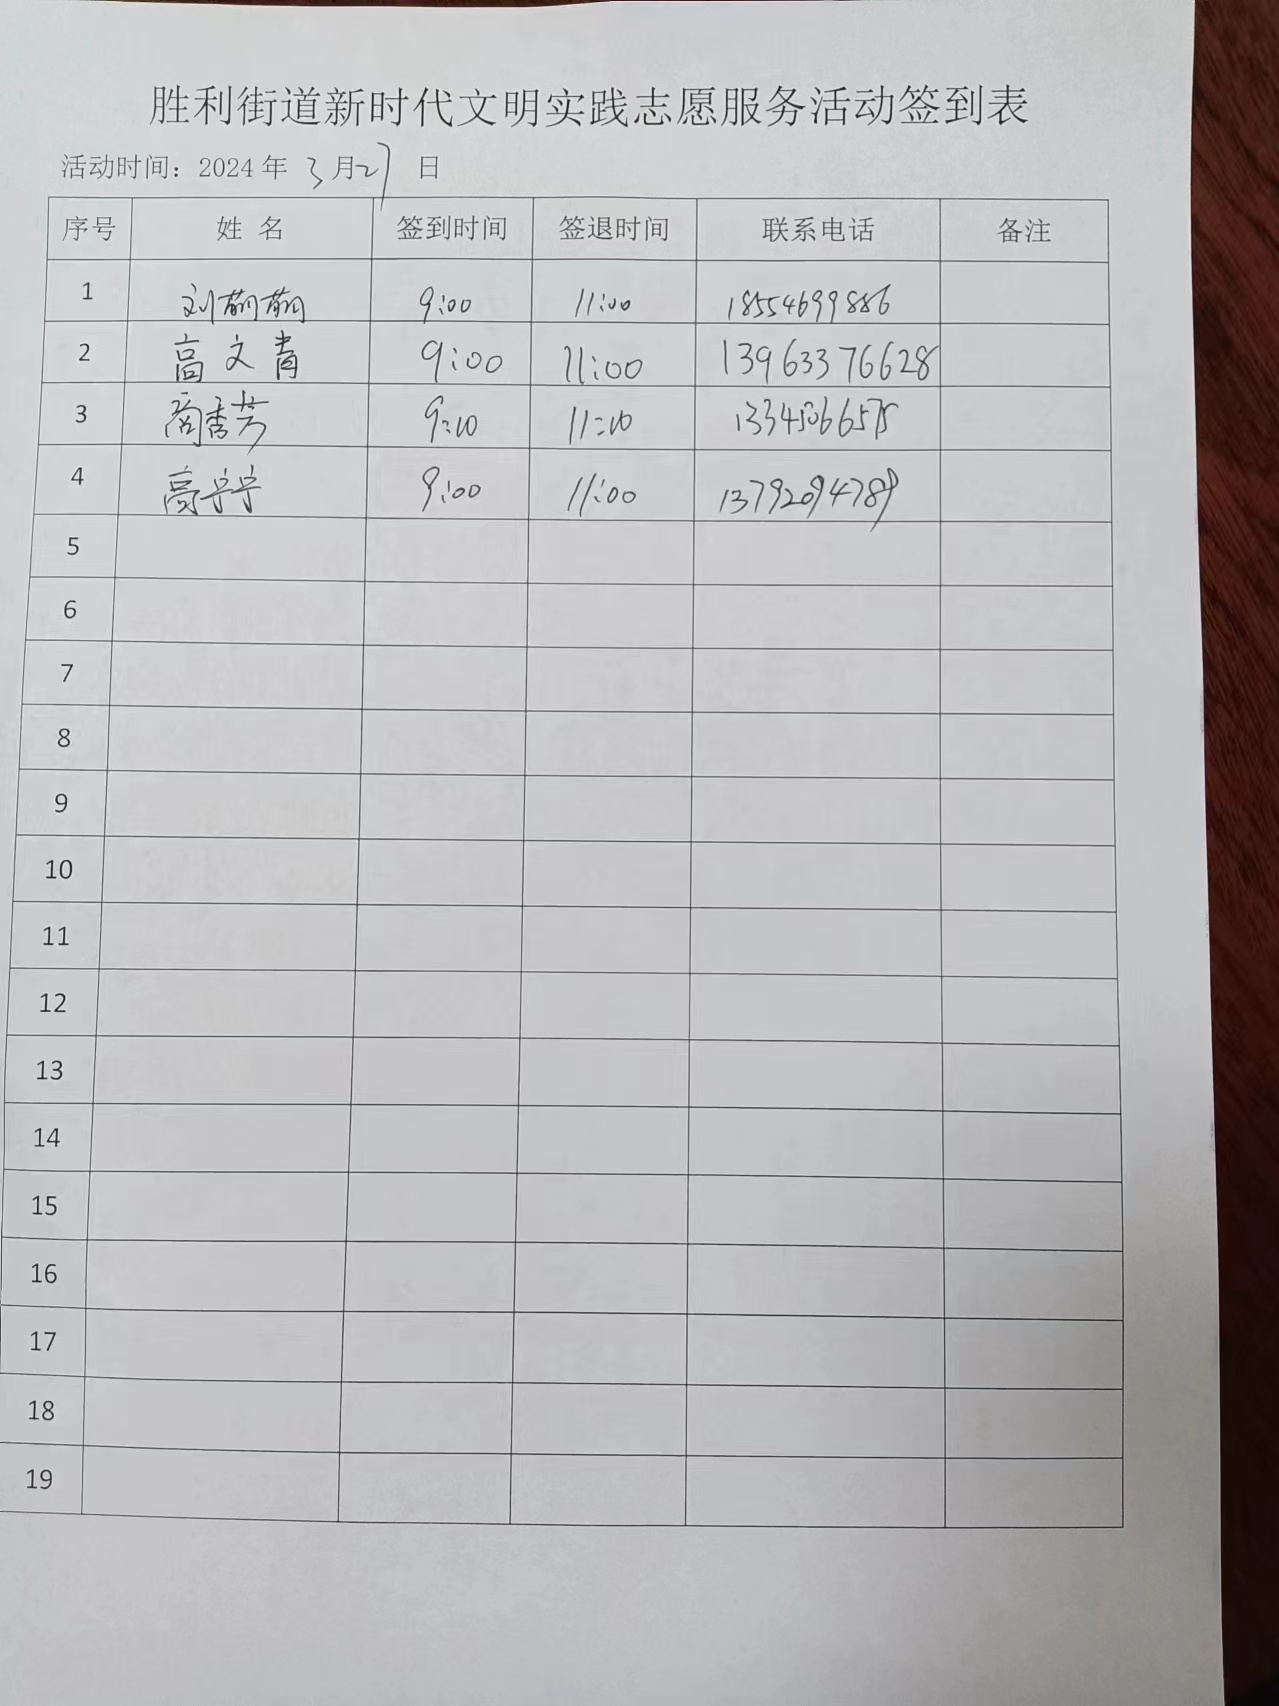 胜利街道新时代文明实践志愿服务活动签到表
活动时间：2024年 3月27日
序号 姓 名 签到时间 签退时间 联系电话 备注
1 刘萌萌 9:00 11:00 18554699886
2 高文青 9:00 11:00 13963376628
3 商秀芳 9:10 11:10
4 高宁宁 9:00 11:00 13792094789
5
6
7
8
9
10
11
12
13
14
15
16
17
18
19